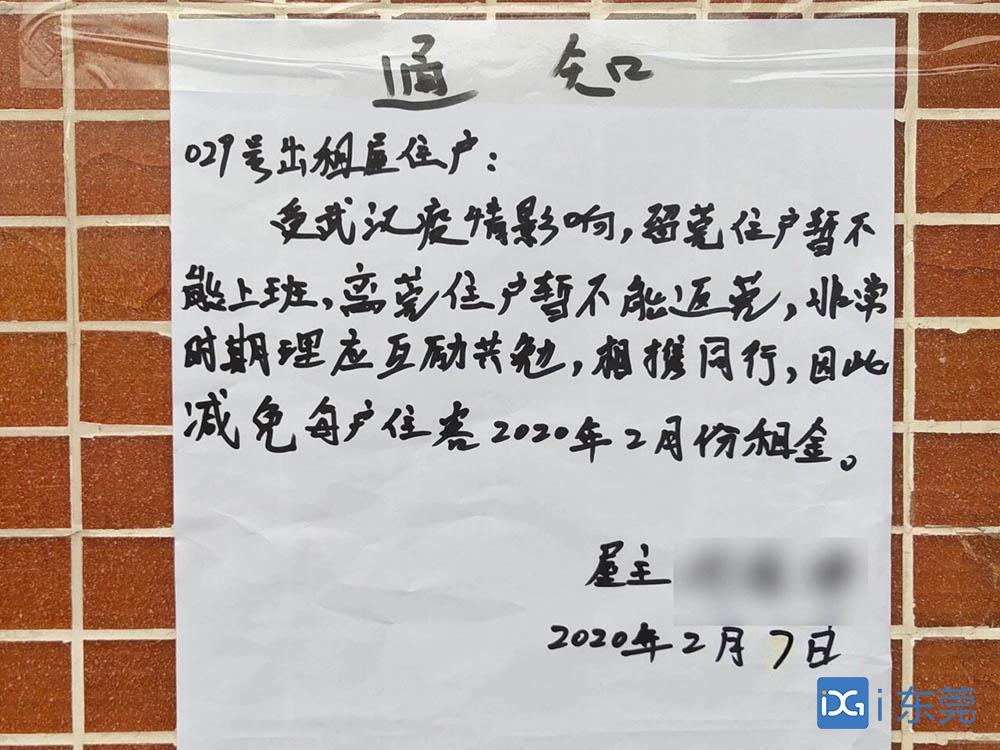 通知
029号出租屋住户：
受武汉疫情影响，留莞住户暂不
能上班，离莞住户暂不能返莞，非常
时期理应互励共勉，相携同行，因此
减免每户住客2020年2月份租金。
屋主
2020年2月7日
iDG i东莞